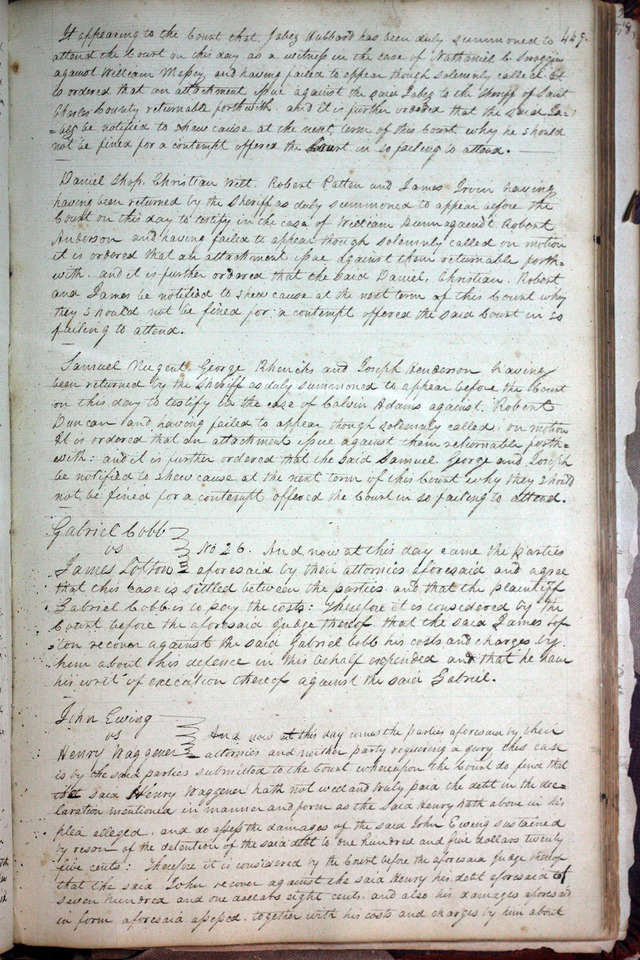 It appearing to the Court that Jabez Hubbard has been duly summoned to 449.
attend the Court on this day as a witness in the case of Nathaniel C Scroggins
against William Massey, and having failed to appear though solemnly called It
is ordered that an attachment issue against the said Jabez to the Sheriff of Saint
Charles County returnable forthwith. and it is further ordered that the said Ja-
=bez be notified to shew cause at the next term of this Court why he should
not be fined for a contempt offered the Court in so failing to attend.
Daniel Shop, Christian Witt, Robert Patten and James Irvin having
having been returned by the Sheriff as duly summoned to appear before the
Court on this day to testify in the case of William Dunn against Robert
Anderson and having failed to appear though solemnly called on motion
it is ordered that an attachment issue against them returnable forth=
with. and it is further ordered that the said Daniel, Christian, Robert
and James be notified to shew cause at the next term of this Court why
they should not be fined for a contempt offered the said Court in so
failing to attend.
Samuel Nugent, George and Joseph Henderson having
been returned by the Sheriff as duly summoned to appear before the Court
on this day to testify in the case of Calvin Adams against Robert
Duncan and having failed to appear though solemnly called, on motion
It is ordered that an attachment issue against them returnable forth=
with: and it is further ordered that the said Samuel George and Joseph
be notified to shew cause at the next term of this Court why they should
not be fined for a contempt offered the Court in so failing to attend.
Gabriel Cobb
vs No 26. And now at this day came the parties
James Lofton aforesaid by their attornies aforesaid and agree
that this case is settled between the parties and that the plaintiff
Gabriel Cobb is to pay the costs: Therefore it is considered by the
Court before the aforesaid Judge thereof that the said James Lof
ton recover against the said Gabriel Cobb his costs and charges by
him about his defence in this behalf expended and that he have
his writ of execution thereof against the said Gabriel.
John Ewing
vs And now at this day comes the parties aforesaid by their
Henry Waggener attornies and neither party requiring a jury this case
is by the said parties submitted to the Court whereupon the Court do find that
the said Henry Waggener hath not well and truly paid the debt in the dec=
laration mentioned in manner and form as the said Henry hath above in his
plea alledged, and do assess the damages of the said John Ewing sustained
by reson of the detention of the said debt to one hundred and five dollars twenty
five cents: Therefore it is considered by the Court before the aforesaid Judge thereof
that the said John recover against the said Henry his debt aforesaid of
seven hundred and one dollars eight cents, and also his damages aforesaid
in form aforesaid assessed, together with his costs and charges by him about